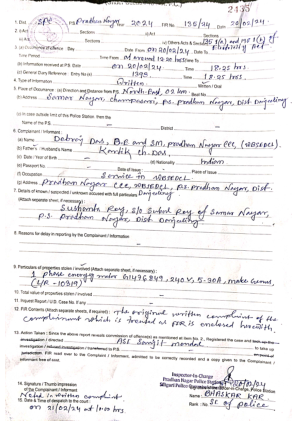 2133
1. Dist. SPC P.S. Pradhan Nagar Year 2024 FIR No. 136/24 Date 20/02/24
2. i) Act Sections 135 1(a) and 1(b) of
iii) Act Sections Electricity Act
3. (a) Occurrence of offence Day Date From on 20/02/24 Date To
Time Period Time From at around 12:00 hrs Time To
(b) Information received at P.S. Date on 20/02/24 Time 18.25 hrs
(c) General Diary Reference: Entry No(s) 1298 Time 18.25 hrs.
4. Type of Information Written Written / Oral
5. Place of Occurrence: (a) Direction and Distance from PS North East, 02 km Beat No.
(b) Address Samar Nagar, Champasari, P.S. Pradhan Nagar, Dist. Darjeeling
(c) In case outside limit of this Police Station, then the
Name of the P.S. District
6. Complainant / Informant :
(a) Name Debraj Das, B.E and SM, Pradhan Nagar CCC, WBSEDCL
(b) Father's / Husband's Name Kartik ch. Das
(c) Date / Year of Birth (d) Nationality Indian
(e) Passport No. Date of Issue Place of Issue
(f) Occupation Service in WBSEDCL
(g) Address Pradhan Nagar CCC, WBSEDCL, P.S. Pradhan Nagar, Dist. Darjeeling
7. Details of known / suspected / unknown accused with full particulars
(Attach separate sheet, if necessary) :
Sushanta Roy, S/o Subal Roy of Samar Nagar,
P.S. Pradhan Nagar, Dist Darjeeling
8. Reasons for delay in reporting by the Complainant / Informant
9. Particulars of properties stolen / involved (Attach separate sheet, if necessary) :
1 phase energy meter G1496849, 240V, 5-30A, make Genus,
(L/R - 10319)
10. Total value of properties stolen / involved
11. Inquest Report / U.D. Case No. If any
12. FIR Contents (Attach separate sheets, if required) : The original written complaint of the
Complainant which is treated as FIR is enclosed herewith.
13. Action Taken : Since the above report reveals commission of offence(s) as mentioned at Item No. 2., Registered the case and took up the
investigation / directed ASI Samjit Mondal
to take up the investigation
jurisdiction. F.I.R. read over to the Complainant / Informant, admitted to be correctly recorded and a copy given to the Complainant /
Informant free of cost.
14. Signature / Thumb Impression
of the Complainant / Informant
Noted in written complaint
15. Date & Time of despatch to the court :
on 21/02/24 at 10:00 hrs
Inspector-in-Charge
Pradhan Nagar Police Station
Siliguri Police
20/02/24
Name : BHASKAR KAR
Rank : SI of police